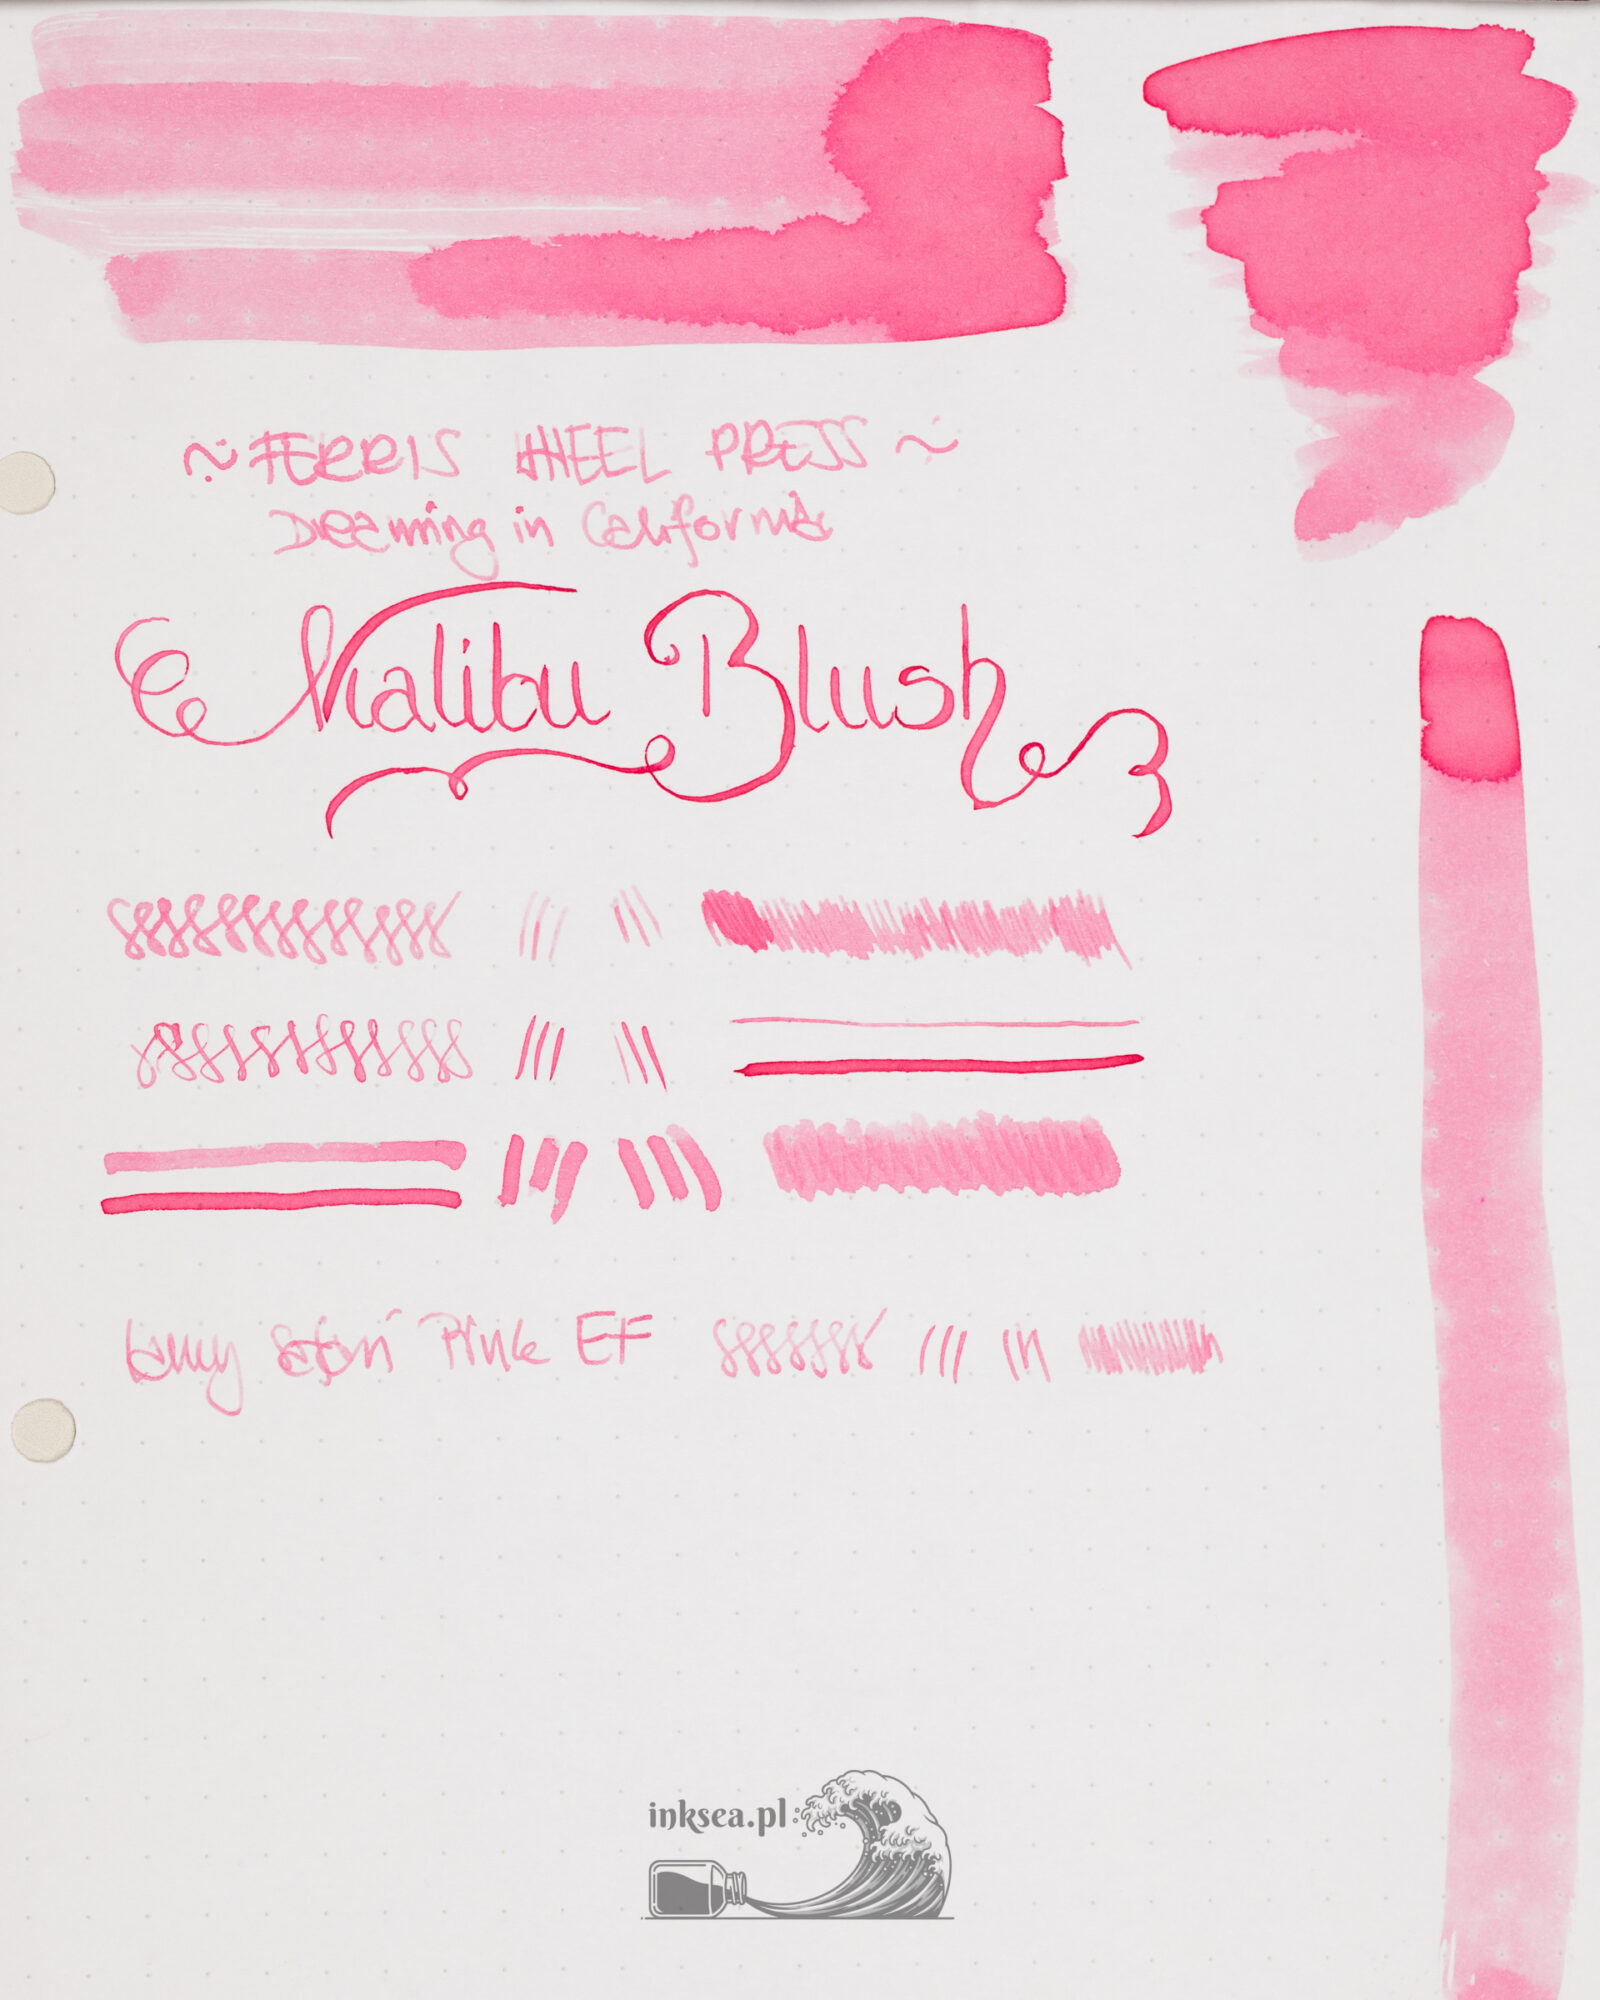 ~ FERRIS WHEEL PRESS ~
Dreaming in California
Malibu Blush
Lamy Safari Pink EF
inksea.pl